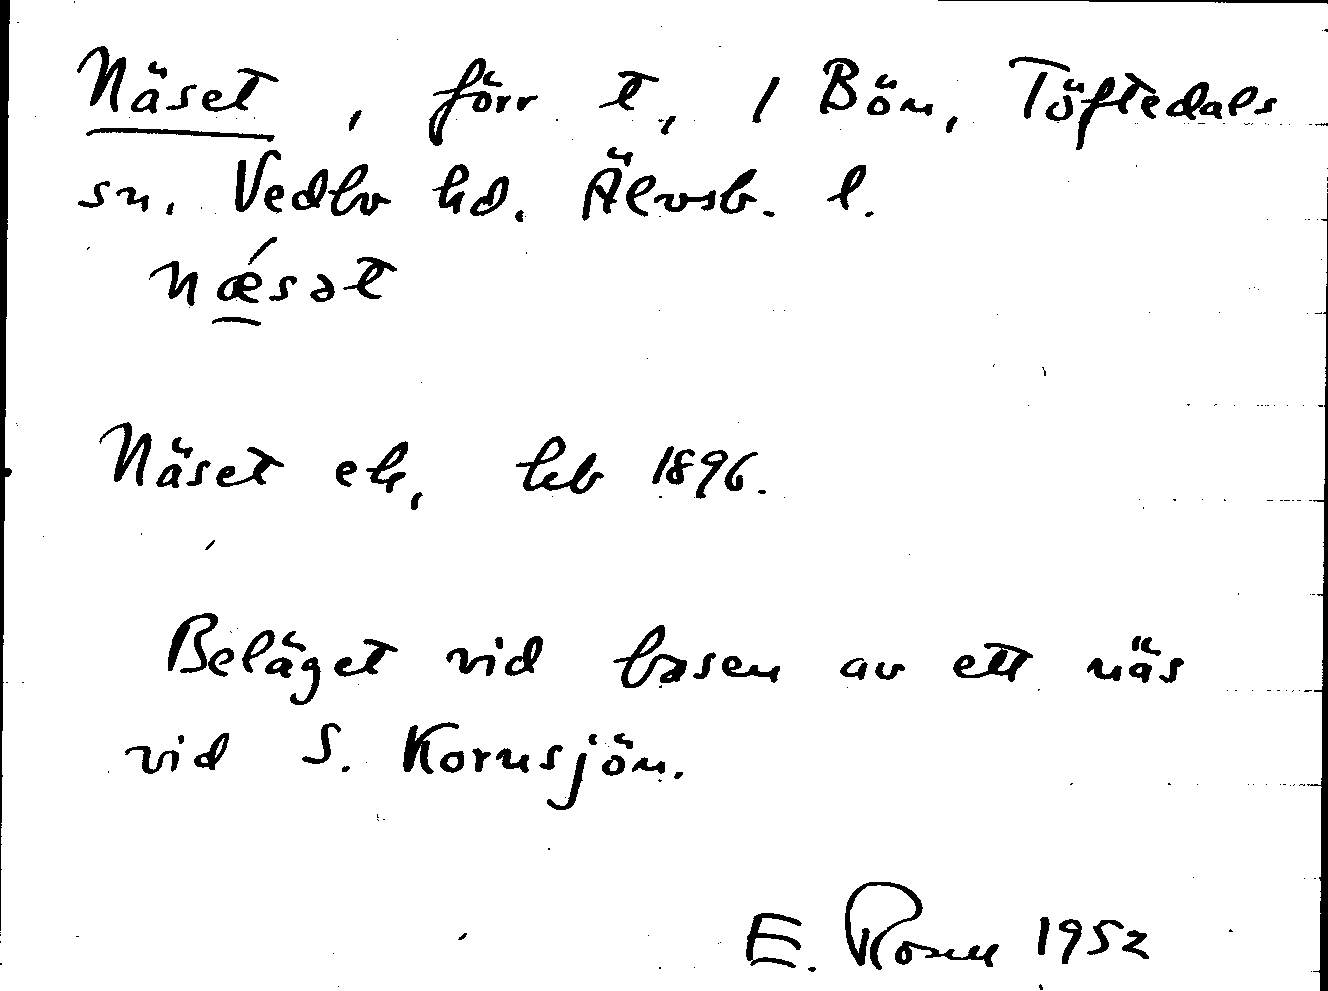 Näset, förr t, 1 Bön, Töftedals
sn. Vedbo hd. Älvsb. l.
nǽsət
Näset eh, hkb 1896.
Beläget vid basen av ett näs
vid S. Kornsjön.
E. Rosell 1952